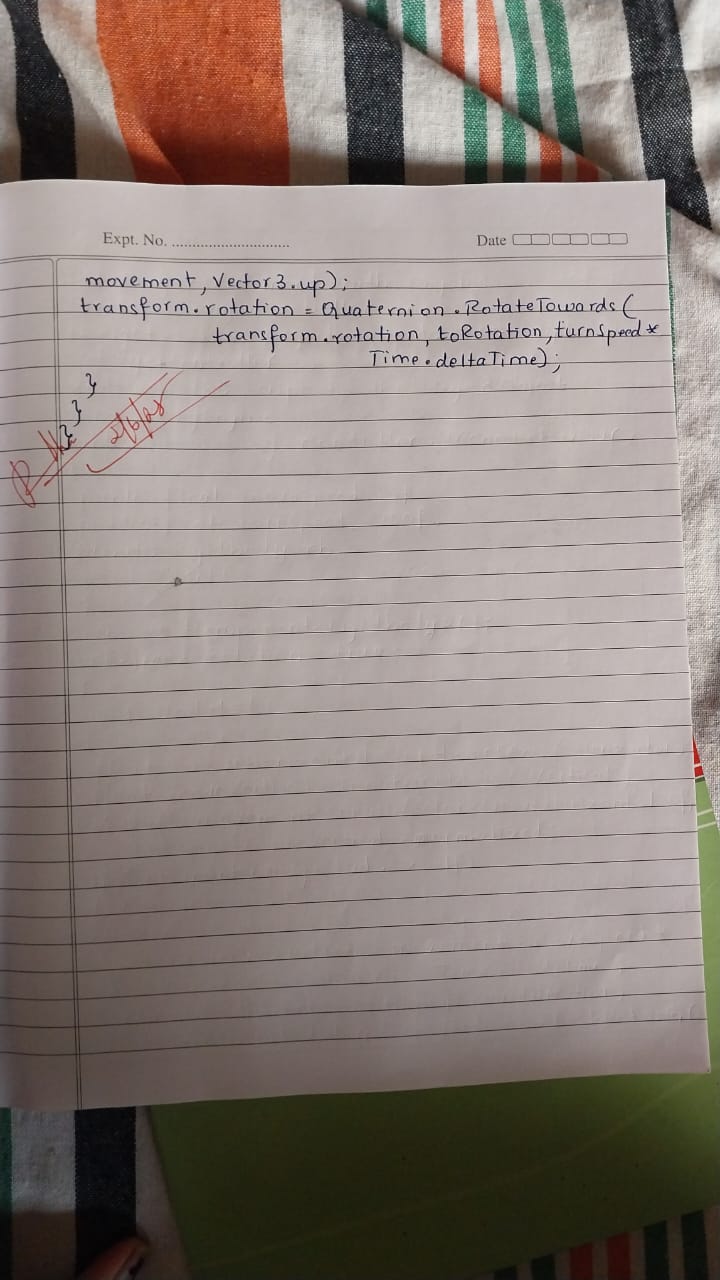 Expt. No. ............................
Date
movement, Vector3.up);
transform.rotation = Quaternion.RotateTowards(
transform.rotation, toRotation, turnSpeed *
Time.deltaTime);
}
}
}